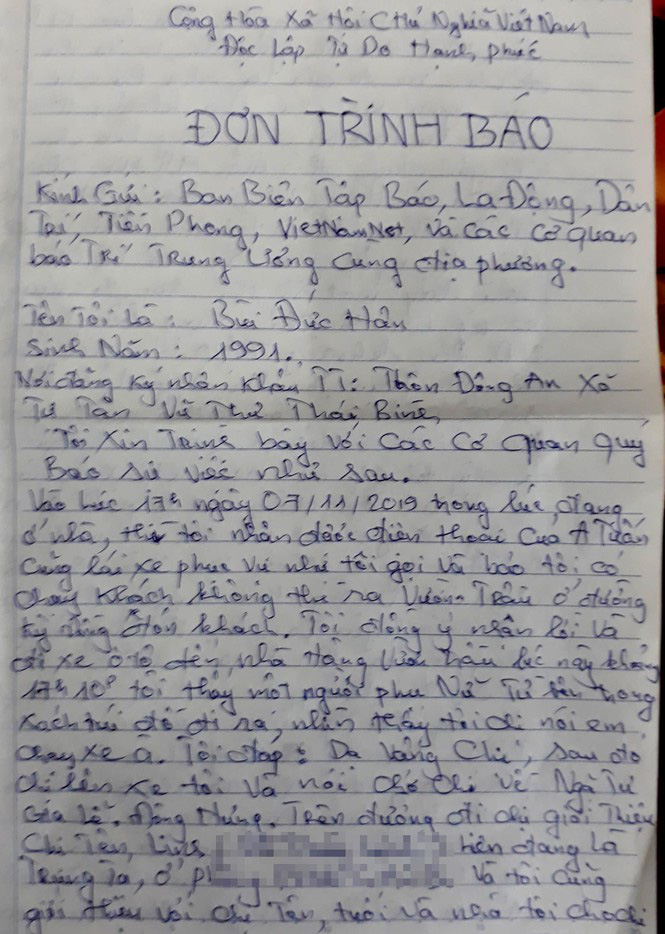 Cộng Hòa Xã Hội Chủ Nghĩa Việt Nam
Độc Lập Tự Do Hạnh phúc
ĐƠN TRÌNH BÁO
Kính Gửi: Ban Biên Tập Báo, Lao Động, Dân
Trí, Tiền Phong, VietNamNet, và các cơ quan
báo Trí Trung ương cùng địa phương.
Tên Tôi Là: Bùi Đức Hân
Sinh Năm: 1991.
Nơi đăng ký nhân khẩu TT: Thôn Đông An Xã
Tự Tân Vũ Thư Thái Bình
Tôi Xin Trình bày với Các Cơ quan quý
Báo sự việc như sau.
Vào lúc 17h ngày 07/11/2019 trong lúc, đang
ở nhà, thì tôi nhận được điện thoại của A Tuấn
cũng lái xe phục vụ như tôi gọi và bảo tôi có
chạy khách không thì ra Vườn Trầu ở đường
Kỳ đồng đón khách. Tôi đồng ý nhận lời và
đi xe ô tô đến, nhà Hàng Vườn trầu lúc này khoảng
17h10p tôi thấy một người phụ Nữ Từ bên trong
xách túi đồ đi ra, nhìn thấy tôi chị nói em
chạy xe à. Tôi đáp: Dạ vâng Chị, sau đó
chị lên xe tôi và nói chở chị về Ngã Tư
Gia Lễ. Đông Hưng. Trên đường đi chị giới Thiệu
Chị Tên, hiện đang là
Trung Tá, ở và tôi cũng
giới thiệu với chị Tên, tuổi và nhà tôi cho chị